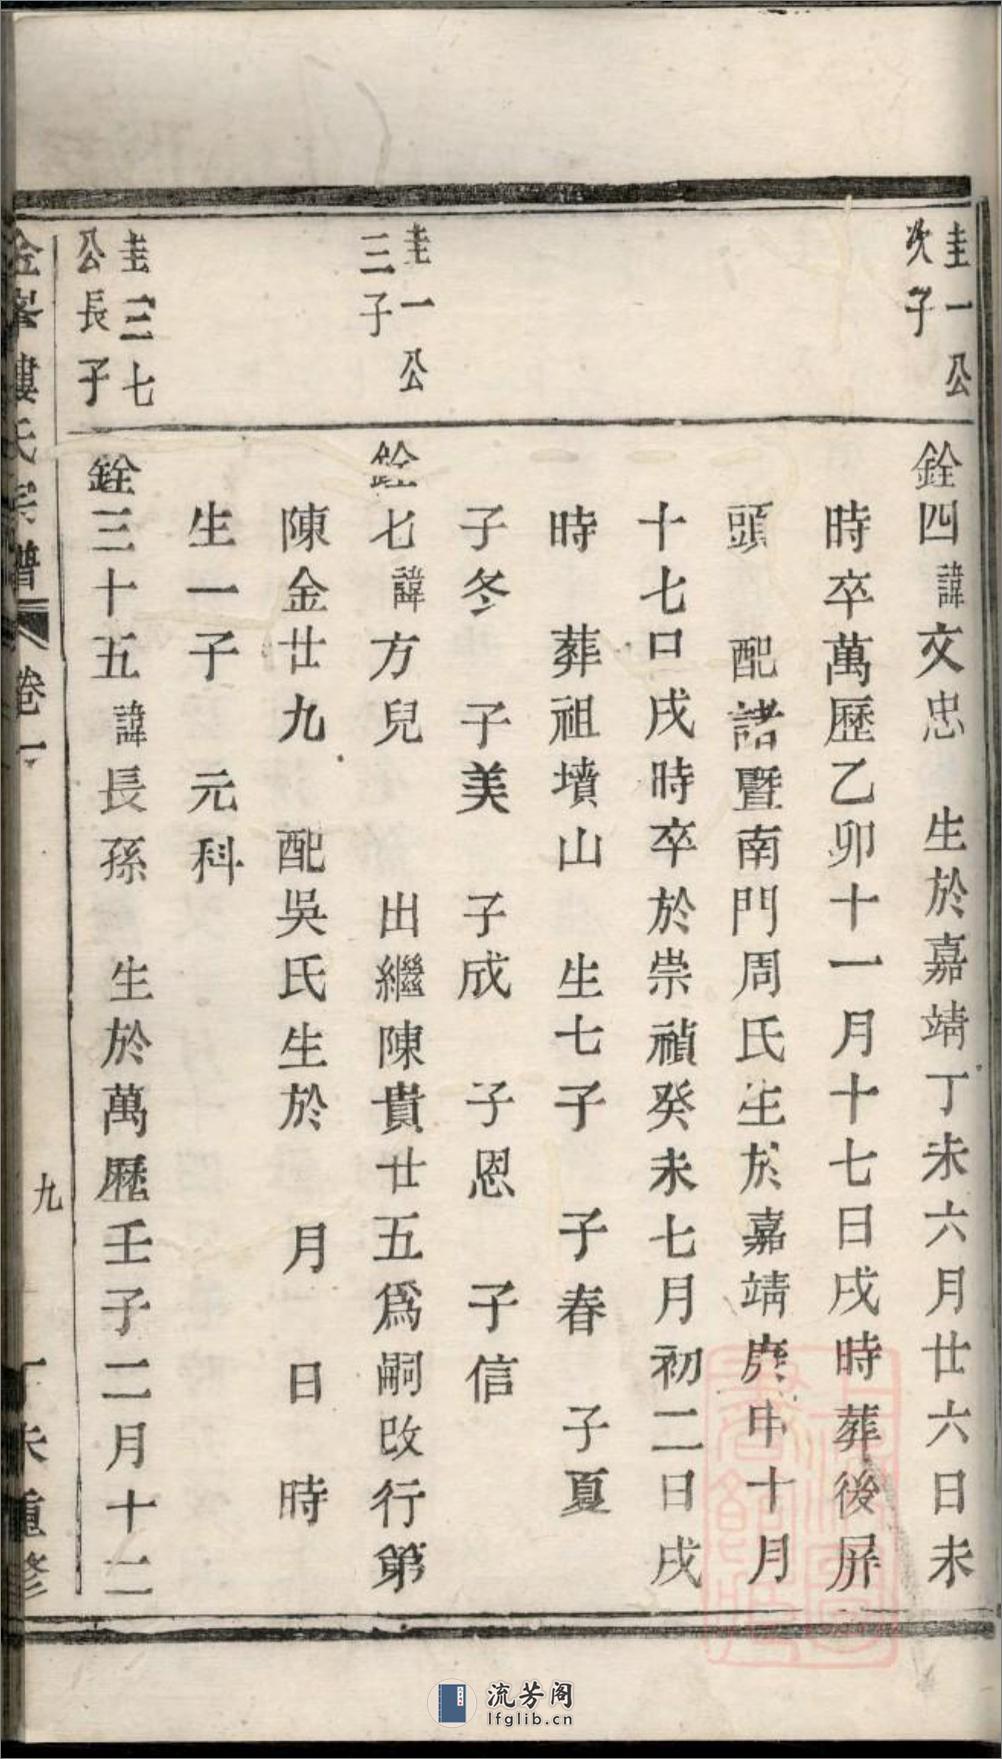 圭一公
次子
銓四諱文忠 生於嘉靖丁未六月廿六日未
時卒萬歷乙卯十一月十七日戌時葬後屏
頭 配諸暨南門周氏生於嘉靖庚申十月
十七口戌時卒於崇禎癸未七月初二日戌
時 葬祖墳山 生七子 子春 子夏
子冬 子美 子成 子恩 子信
圭一公
三子
銓七諱方兒 出繼陳貴廿五爲嗣改行第
陳金廿九 配吳氏生於 月 日 時
生一子 元科
圭三七
公長子
銓三十五諱長孫 生於萬歷壬子二月十二
金峯樓氏宗譜 卷一 九 丁未重修
流芳阁
lfglib.cn